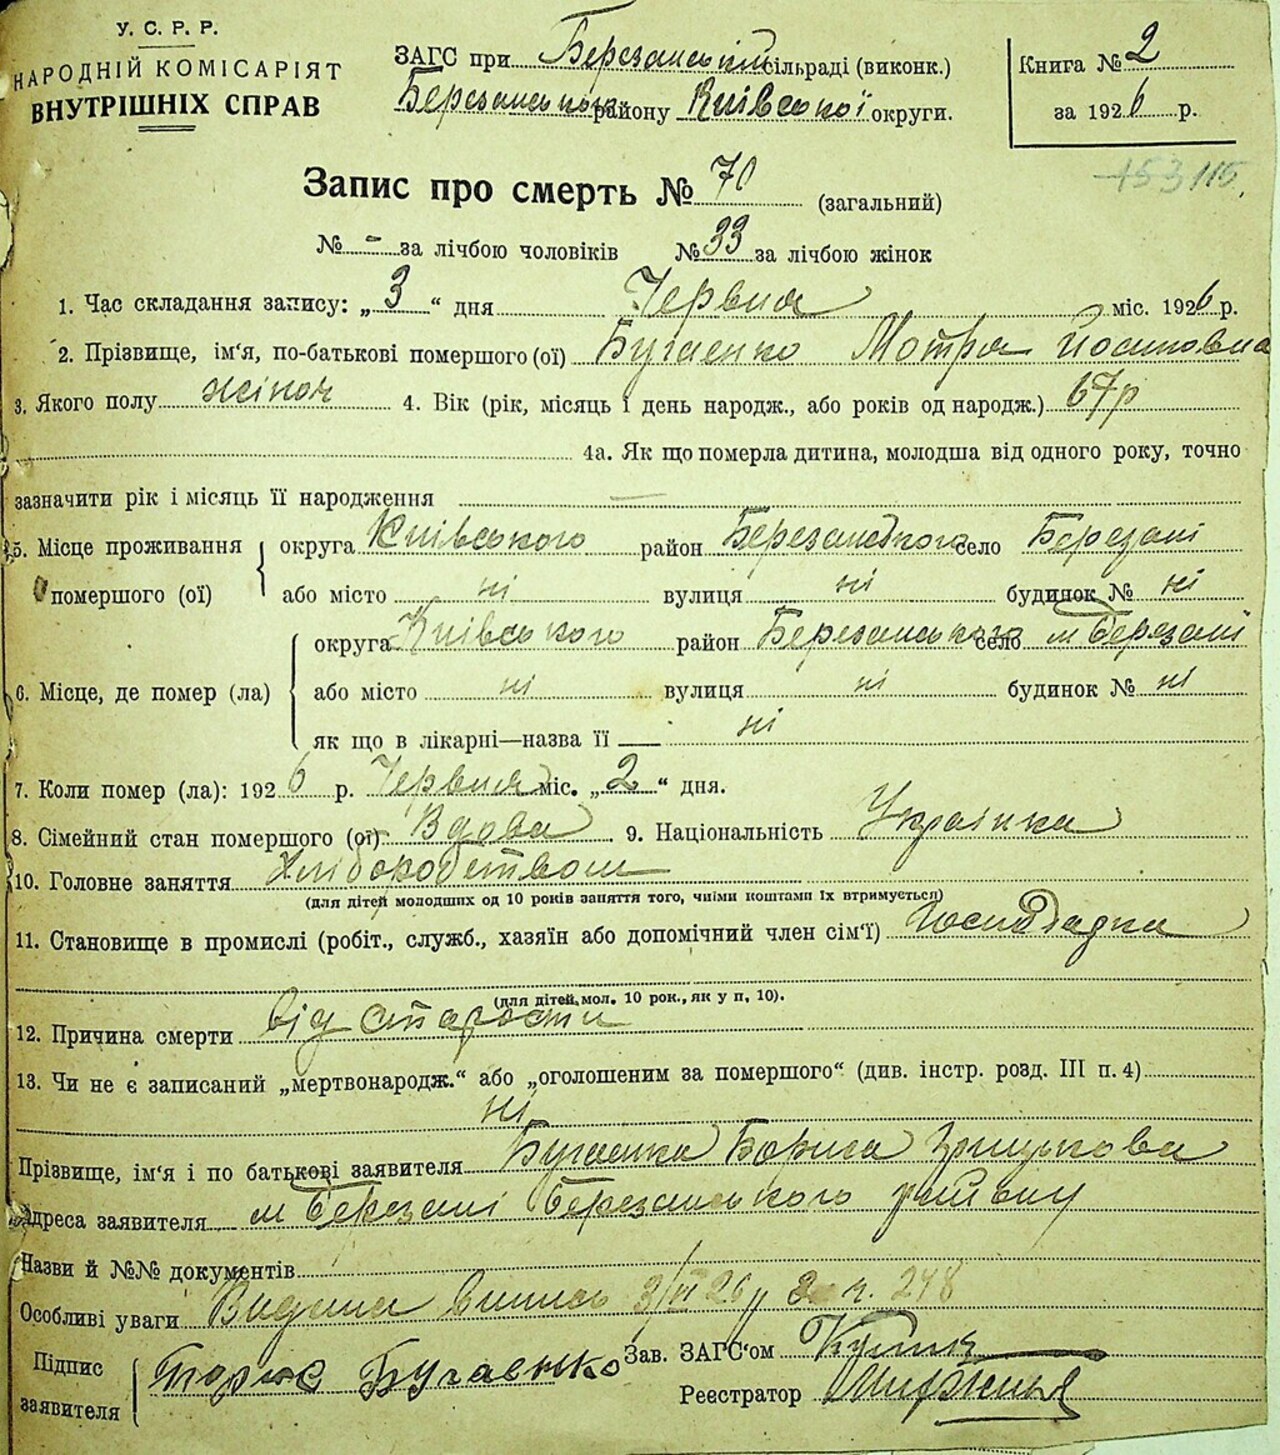 У. С. Р. Р.
НАРОДНІЙ КОМІСАРІЯТ
ВНУТРІШНІХ СПРАВ
ЗАГС при Березанській сільраді (виконк.)
Березанського району Київської округи.
Книга № 2
за 1926 р.
Запис про смерть № 70 (загальний)
153 115
№ - за лічбою чоловіків № 33 за лічбою жінок
1. Час складання запису: „3“ дня Червня міс. 1926 р.
2. Прізвище, ім‘я, по-батькові помершого (ої) Бугаенко Мотря Йосиповна
3. Якого полу жіноч 4. Вік (рік, місяць і день народж., або років од народж.) 67р
4а. Як що померла дитина, молодша від одного року, точно
зазначити рік і місяць її народження
5. Місце проживання помершого (ої) округа Київського район Березанського село Березані
або місто ні вулиця ні будинок № ні
6. Місце, де помер (ла) округа Київського район Березанського село м Березані
або місто ні вулиця ні будинок № ні
як що в лікарні—назва її ні
7. Коли помер (ла): 1926 р. Червня міс. „2“ дня.
8. Сімейний стан помершого (ої) Вдова 9. Національність Українка
10. Головне заняття Хліборобством
(для дітей молодших од 10 років заняття того, чиїми коштами їх втримується)
11. Становище в промислі (робіт., служб., хазяїн або допомічний член сім‘ї)
(для дітей, мол. 10 рок., як у п, 10).
12. Причина смерти від старости
13. Чи не є записаний „мертвонародж.“ або „оголошеним за помершого“ (див. інстр. розд. III п. 4)
ні
Прізвище, ім‘я і по батькові заявителя Бугаенка Бориса
Адреса заявителя м Березані Березанського району
Назви й №№ документів
Особливі уваги Видана випись 3/VI 26 р за ч. 248
Підпис заявителя Борис Бугаенко
Зав. ЗАГС‘ом
Реєстратор